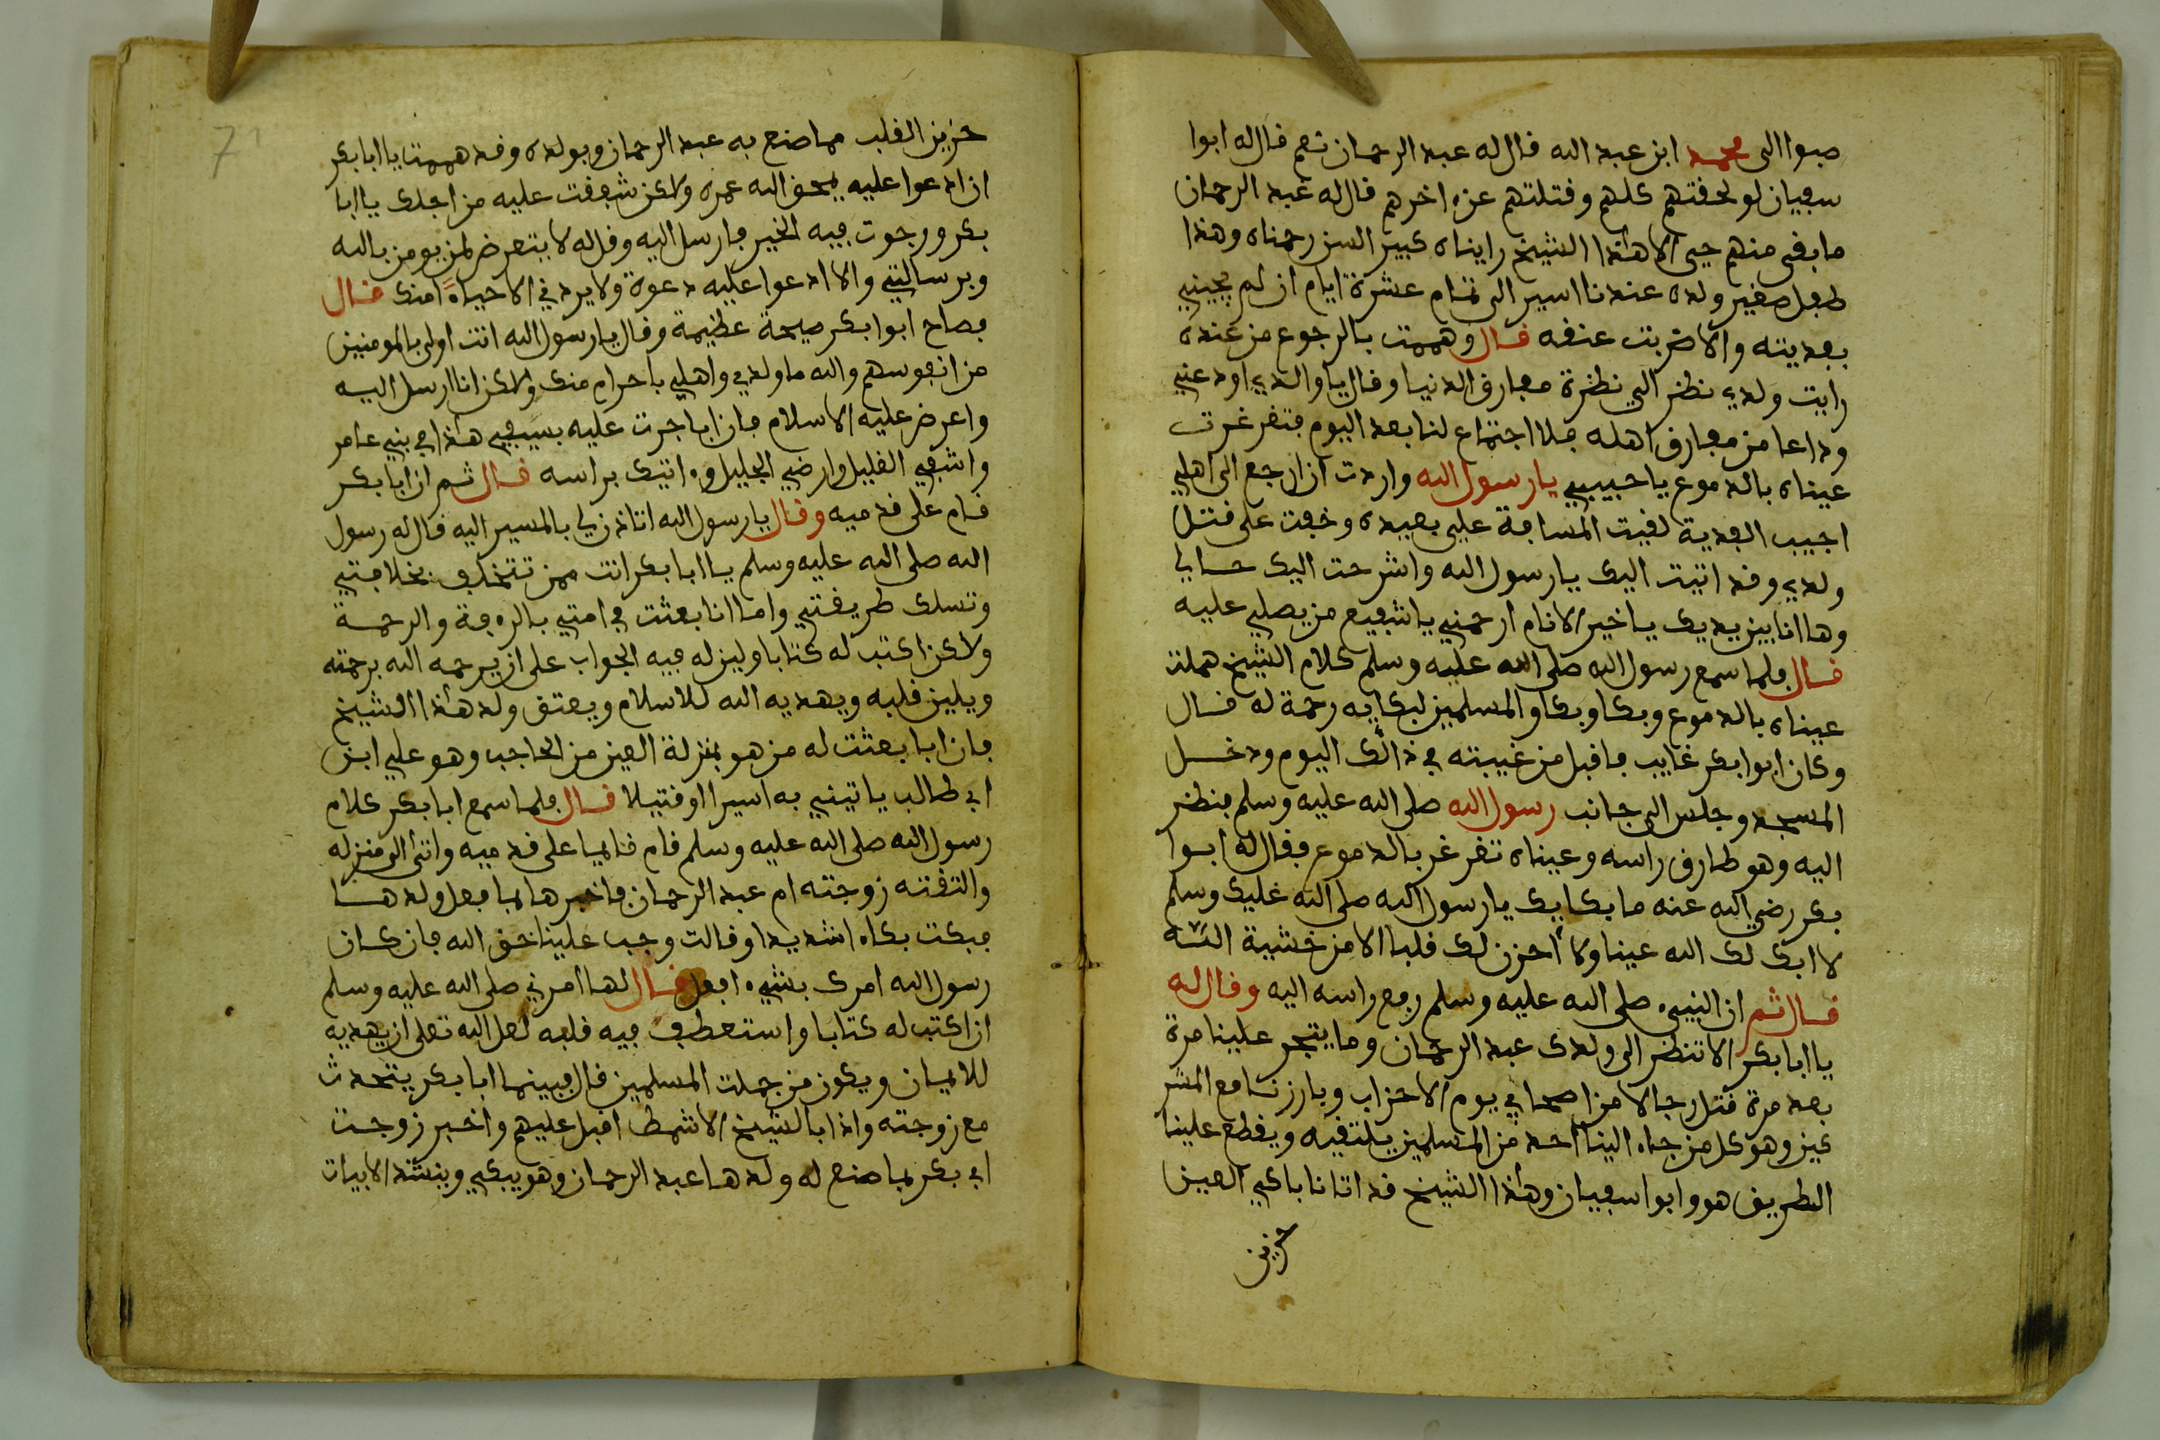 صبوا الى محمد ابن عبد الله قال له عبد الرحمان نعم قال له ابوا
سفيان لو لحقتهم كلهم وقتلتهم عن اخرهم قال له عبد الرحمان
ما بقى منهم حيى الا هذا الشيخ رايناه كبير السن رحمناه وهذا
طفل صغير ولده عندنا اسير الى تمام عشرة ايام ان لم يجيني
بفديته والا ضربت عنقه قال وهممت بالرجوع من عنده
رايت ولدي نظر الي نظرة مفارق الدنيا وقال يا والدي اودعني
وداعا من مفارق اهله فلا اجتماع لنا بعد اليوم فتغرغرت
عيناه بالدموع يا حبيبي يا رسول الله واردت ان ارجع الى اهلي
اجيب الفدية لقيت المسافة علي بعيده وخفت على قتل
ولدي وقد اتيت اليك يا رسول الله واشرحت اليك حالي
وها انا بين يديك يا خير الانام ارحمني يا شفيع من يصلي عليه
قال فلما سمع رسول الله صلى الله عليه وسلم كلام الشيخ هملت
عيناه بالدموع وبكا وبكاو المسلمين لبكايه رحمة له قال
وكان ابوا بكر غايب فاقبل من غيبته في ذالك اليوم ودخل
المسجد وجلس الى جانب رسول الله صلى الله عليه وسلم فنظر
اليه وهو طارق راسه وعيناه تغرغر بالدموع فقال له ابوا
بكر رضي الله عنه ما بكايك يا رسول الله صلى الله عليك وسلم
لا ابك لك الله عينا ولا أحزن لك قلبا الا من خشية الله
قال ثم ان النبيء صلى الله عليه وسلم رفع راسه اليه وقال له
يا ابا بكر الا تنظر الى ولدك عبد الرحمان وما يتجر علينا مرة
بعد مرة قتل رجالا من اصحابي يوم الاحزاب وبارزنا مع المشر
كين وهو كل من جاء الينا احد من المسلمين يلتقيه ويقطع علينا
الطريق هو وابوا سفيان وهذا الشيخ قد اتانا باكي العين
حزين
71
حزين القلب مما صنع به عبد الرحمان وبولده وقد هممت يا ابا بكر
ان ادعوا عليه يمحق الله عمره ولاكن شفقت عليه من اجلك يا ابا
بكر ورجوت فيه الخير فارسل اليه وقل له لا يتعرض لمن يومن بالله
وبرسالتي والا ادعوا عليه دعوة ولا يرد في الاحياة امنك قال
فصاح ابوا بكر صيحة عظيمة وقال يا رسول الله انت اولى بالمومنين
من انفوسهم والله ما ولدي واهلي باحرام منك ولاكن انا ارسل اليه
واعرض عليه الاسلام فان ابا جرت عليه بسيفي هذا في بني عامر
واشفي الغليل وارضي الجليل و اتيك براسه قال ثم ان ابا بكر
قام على قدميه وقال يا رسول الله اتاذن لي بالمسير اليه قال له رسول
الله صلى الله عليه وسلم يا ابا بكر انت ممن تتخلق بخلاقتي
وتسلك طريقتي واما انا بعثت في امتي بالرءفة والرحمة
ولاكن اكتب له كتابا ولين له فيه الجواب على ان يرحمه الله برحمته
ويلين قلبه ويهديه الله للاسلام ويعتق ولد هذا الشيخ
فان ابا بعثت له من هو بمنزلة العين من الحاجب وهو علي ابن
ابي طالب ياتيني به اسيرا او قتيلا قال فلما سمع ابا بكر كلام
رسول الله صلى الله عليه وسلم قام قايما على قدميه واتى الى منزله
والتقته زوجته ام عبد الرحمان فاخبرها بما فعل ولدها
فبكت بكاء اشديدا وقالت وجب علينا حق الله فان كان
رسول الله امرك بشيء افعل قال لها امرني صلى الله عليه وسلم
ان اكتب له كتابا واستعطف فيه قلبه لعل الله تعلى ان يهديه
للايمان ويكون من جملت المسلمين قال فبينما ابا بكر يتحدث
مع زوجته واذا بالشيخ الاشمط اقبل عليهم واخبر زوجت
ابي بكر بما صنع له ولدها عبد الرحمان وهو يبكي وينشد الابيات